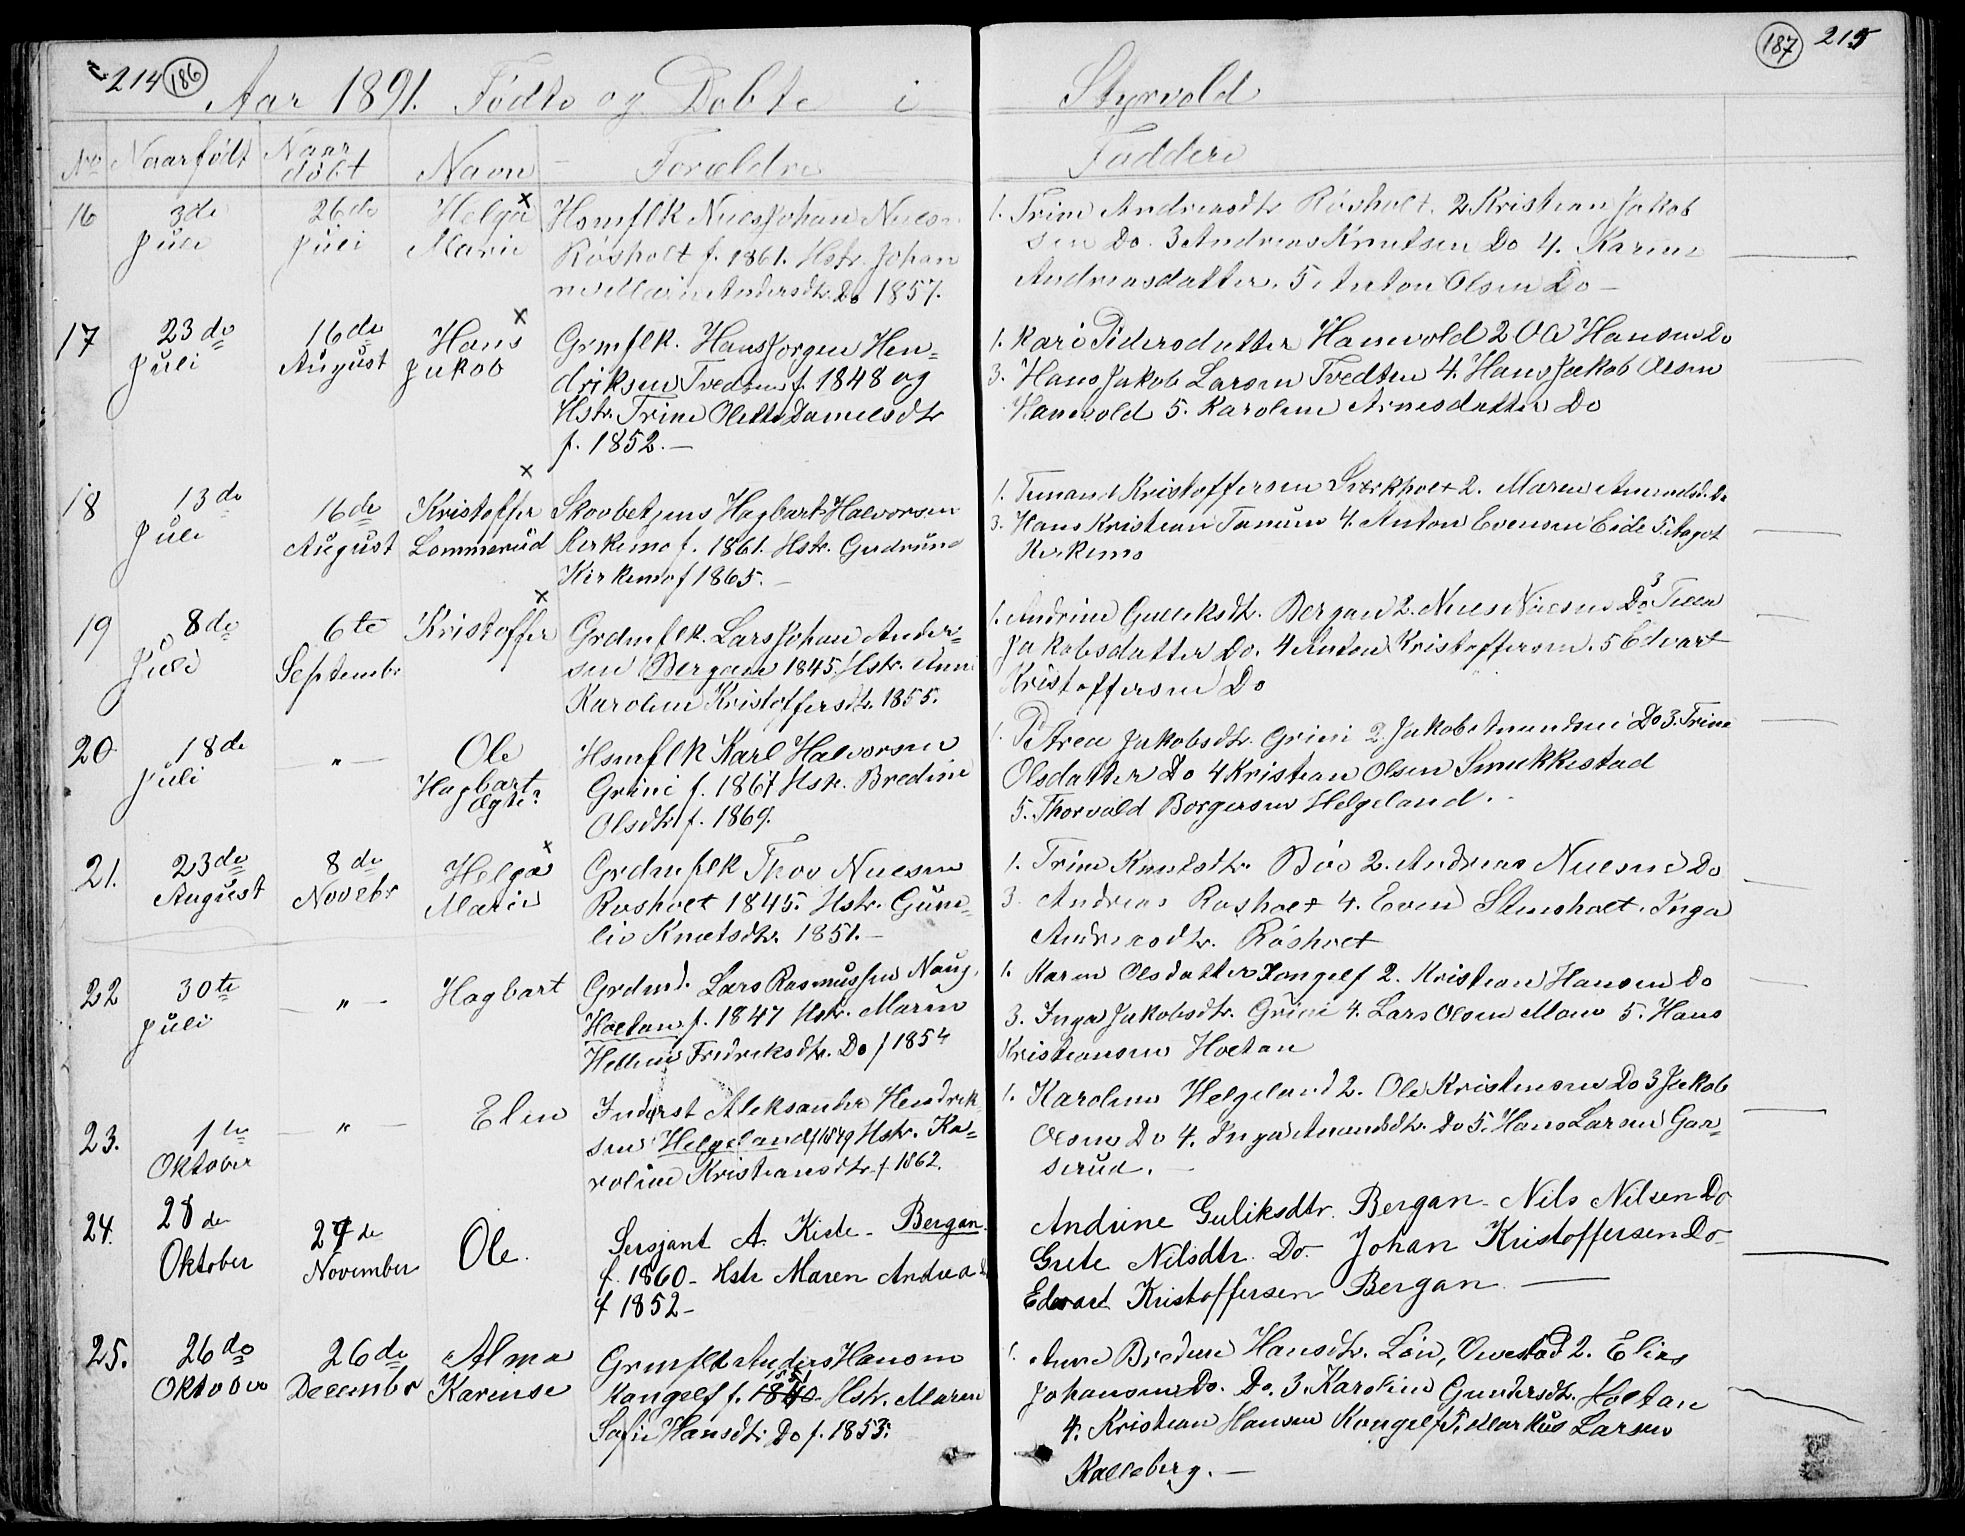 214 186
Aar 1891. Fødte og Døbte i Styrvold
187 215
No Naar født Naar døbt Navn Forældre
Faddere
16 3de Juli 26de Juli Helga Marie
Hsmflk Niels Johan Niels
Røsholt f. 1861. Hstr. Johan
ne Marie Andersdtr. Do 1857.
1. Trine Andreasdtr Røsholt. 2 Kristian Jakob
sen Do. 3 Andreas Knutsen Do 4. Karine
Andreasdatter. 5 Anton Olsen Do –
17 23de Juli 16de August Hans Jakob
Grmflk. Hans Jørgen Hen-
driksen Tvedten f. 1848 og
Hstr. Trine Olette Danielsdtr
f. 1852. –
1. Kari Pedersdatter Hanevold 2 Ole Hansen Do
3. Hans Jakob Larsen Tvedten 4. Hans Jakob Olsen
Hanevold 5. Karoline Arnesdatter Do
18 13de Juli 16de August Kristoffer Lommerud
Skovbetjens Hagbart Halvorsen
Kirkemo f. 1861. Hstr. Gudrune
Kirkemo f 1865. –
1. Kristoffersen 2. Maren
3. Hans Kristian Tanum 4. Anton Evensen Eide 5. Aagot
Kirkemo
19 8de Juli 6te Septembr Kristoffer
Grdmflk. Lars Johan Ander-
sen Bergan 1845. Hstr. Anne
Karoline Kristoffersdtr. 1855.
1. Andrine Gulleksdtr. Bergan 2. Niels Nielsen Do 3 Tilla
Jakobsdatter Do. 4 Anton Kristoffersen. 5 Edvart
Kristoffersen Do
20 18de Juli – " – Ole Hagbart Ægte?
Hsmflk Karl Halvorsen
Grini f. 1867 Hstr. Bredine
Olsdtr f. 1869.
1. Petrea Jakobsdtr. Grini 2. Jakob Amundsen Do 3. Trine
Olsdatter Do 4 Kristian Olsen Smukkestad
5. Thorvald Borgersen Helgeland.
21. 23de August 8de Novebr Helga Marie
Grdmflk Thov Nielsen
Rosholt 1845. Hstr. Gun-
lie Knutsdtr. 1851. –
1. Trine Knutsdtr. Bøe 2. Andreas Nielsen Do
3. Andreas Rosholt 4. Even Stensholt. Inga
Andreasdtr. Røsholt
22 30te Juli – " – Hagbart
Grdmd. Lars Rasmussen Naug.
Holtan f. 1847 Hstr. Maren
Helline Fredriksdtr. Do f 1854
1. Karen Olsdatter Kongelf 2. Kristian Hansen Do
3. Inga Jakobsdtr. Grini 4. Lars Olsen Moen 5. Hans
Kristiansen Holtan
23. 1te Oktober – " – Elen
Inderst Aleksander Hendrik
sen Helgeland f 1849 Hstr. Ka-
roline Kristiansdtr f 1862.
1. Karoline Helgeland 2. Ole Kristensen Do 3 Jakob
Olsen Do 4. Inga Amundsdtr. Do 5. Hans Larsen Gaa-
serud. –
24. 28de Oktober 29de November Ole.
Sersjant A. Kiste – Bergan.
f. 1860 – Hstr Maren Andrea
f 1852 –
Andrine Guliksdtr. Bergan – Nils Nilsen Do
Grete Nilsdtr. Do. Johan Kristoffersen Do
Edvard Kristoffersen Bergan. –
25. 26de Oktober 26de Decembr Alma Karense
Grmflk Anders Hansen
Kongelf f. 1840 1851 Hstr. Maren
Sofie Hansdtr. Do f. 1853.
1. Anne Bredine Hansdtr. Løn, 2. Elias
Johansen Do. Do. 3. Karoline Gundersdtr. Holtan
4. Kristian Hansen Kongelf 5. Markus Larsen
Kalleberg. –